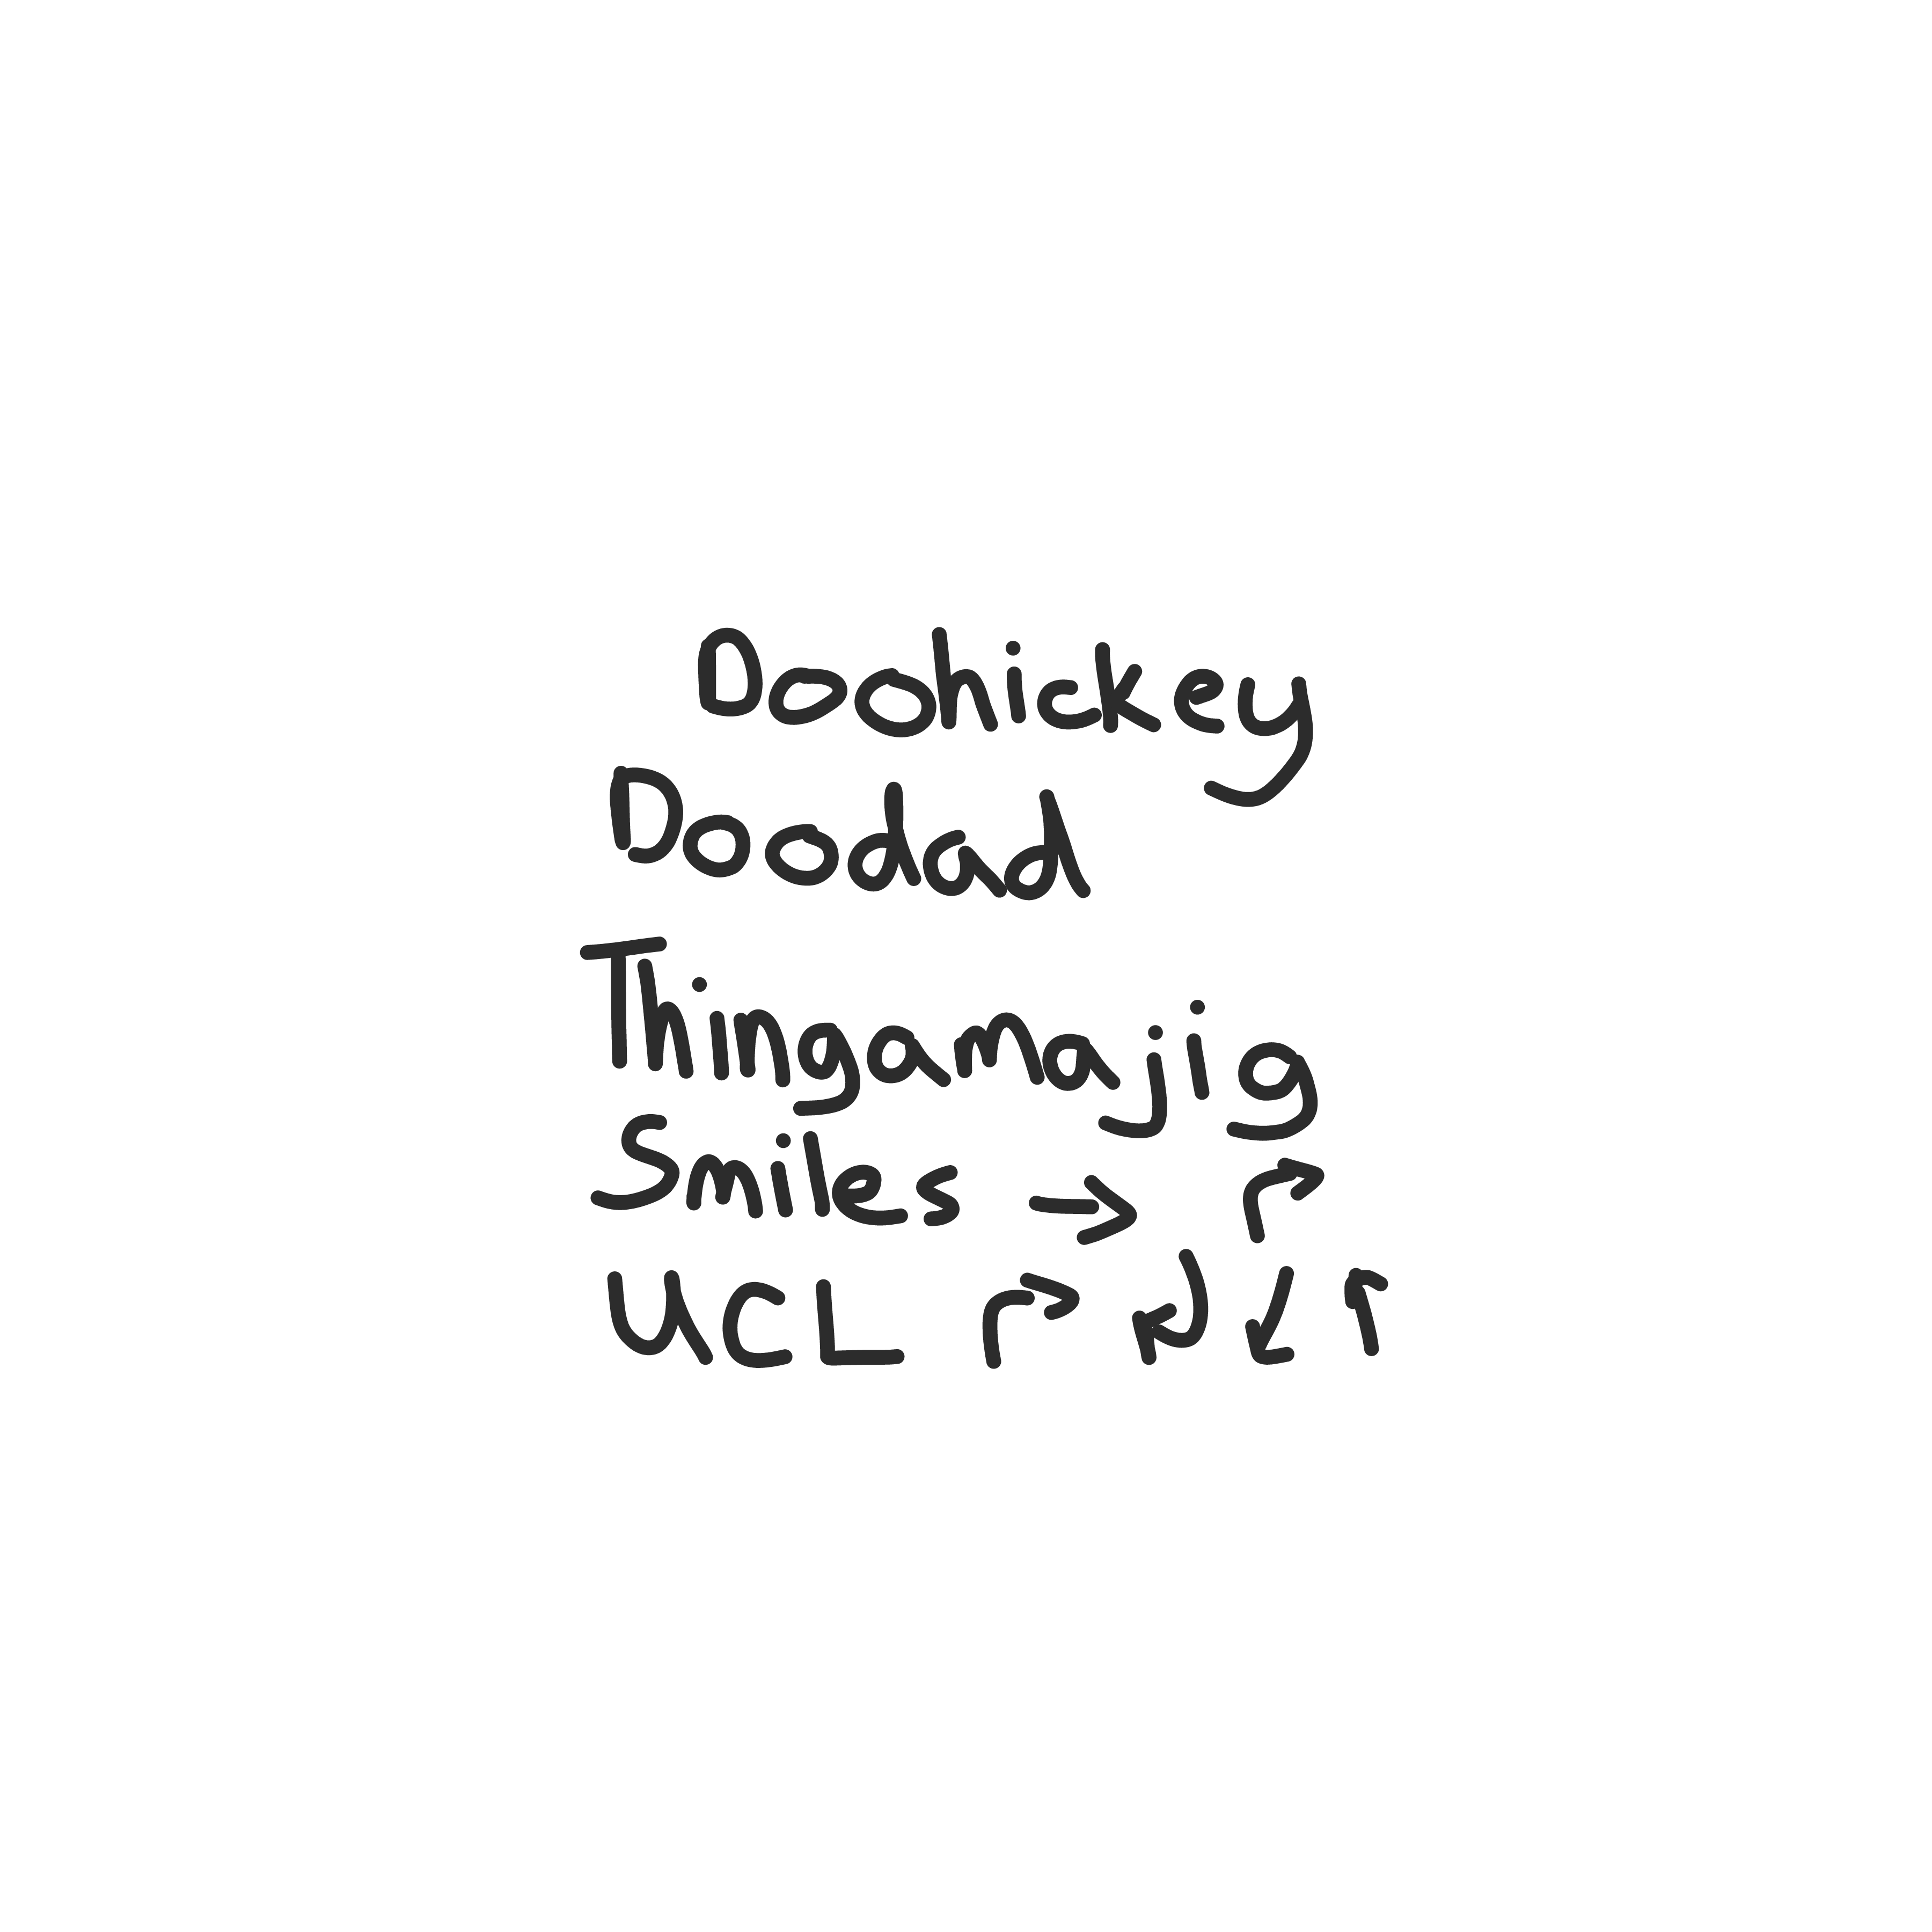 Doohickey
Doodad
Thingamajig
Smiles → ↱
UCL ↱ ↲ ↙ ↰